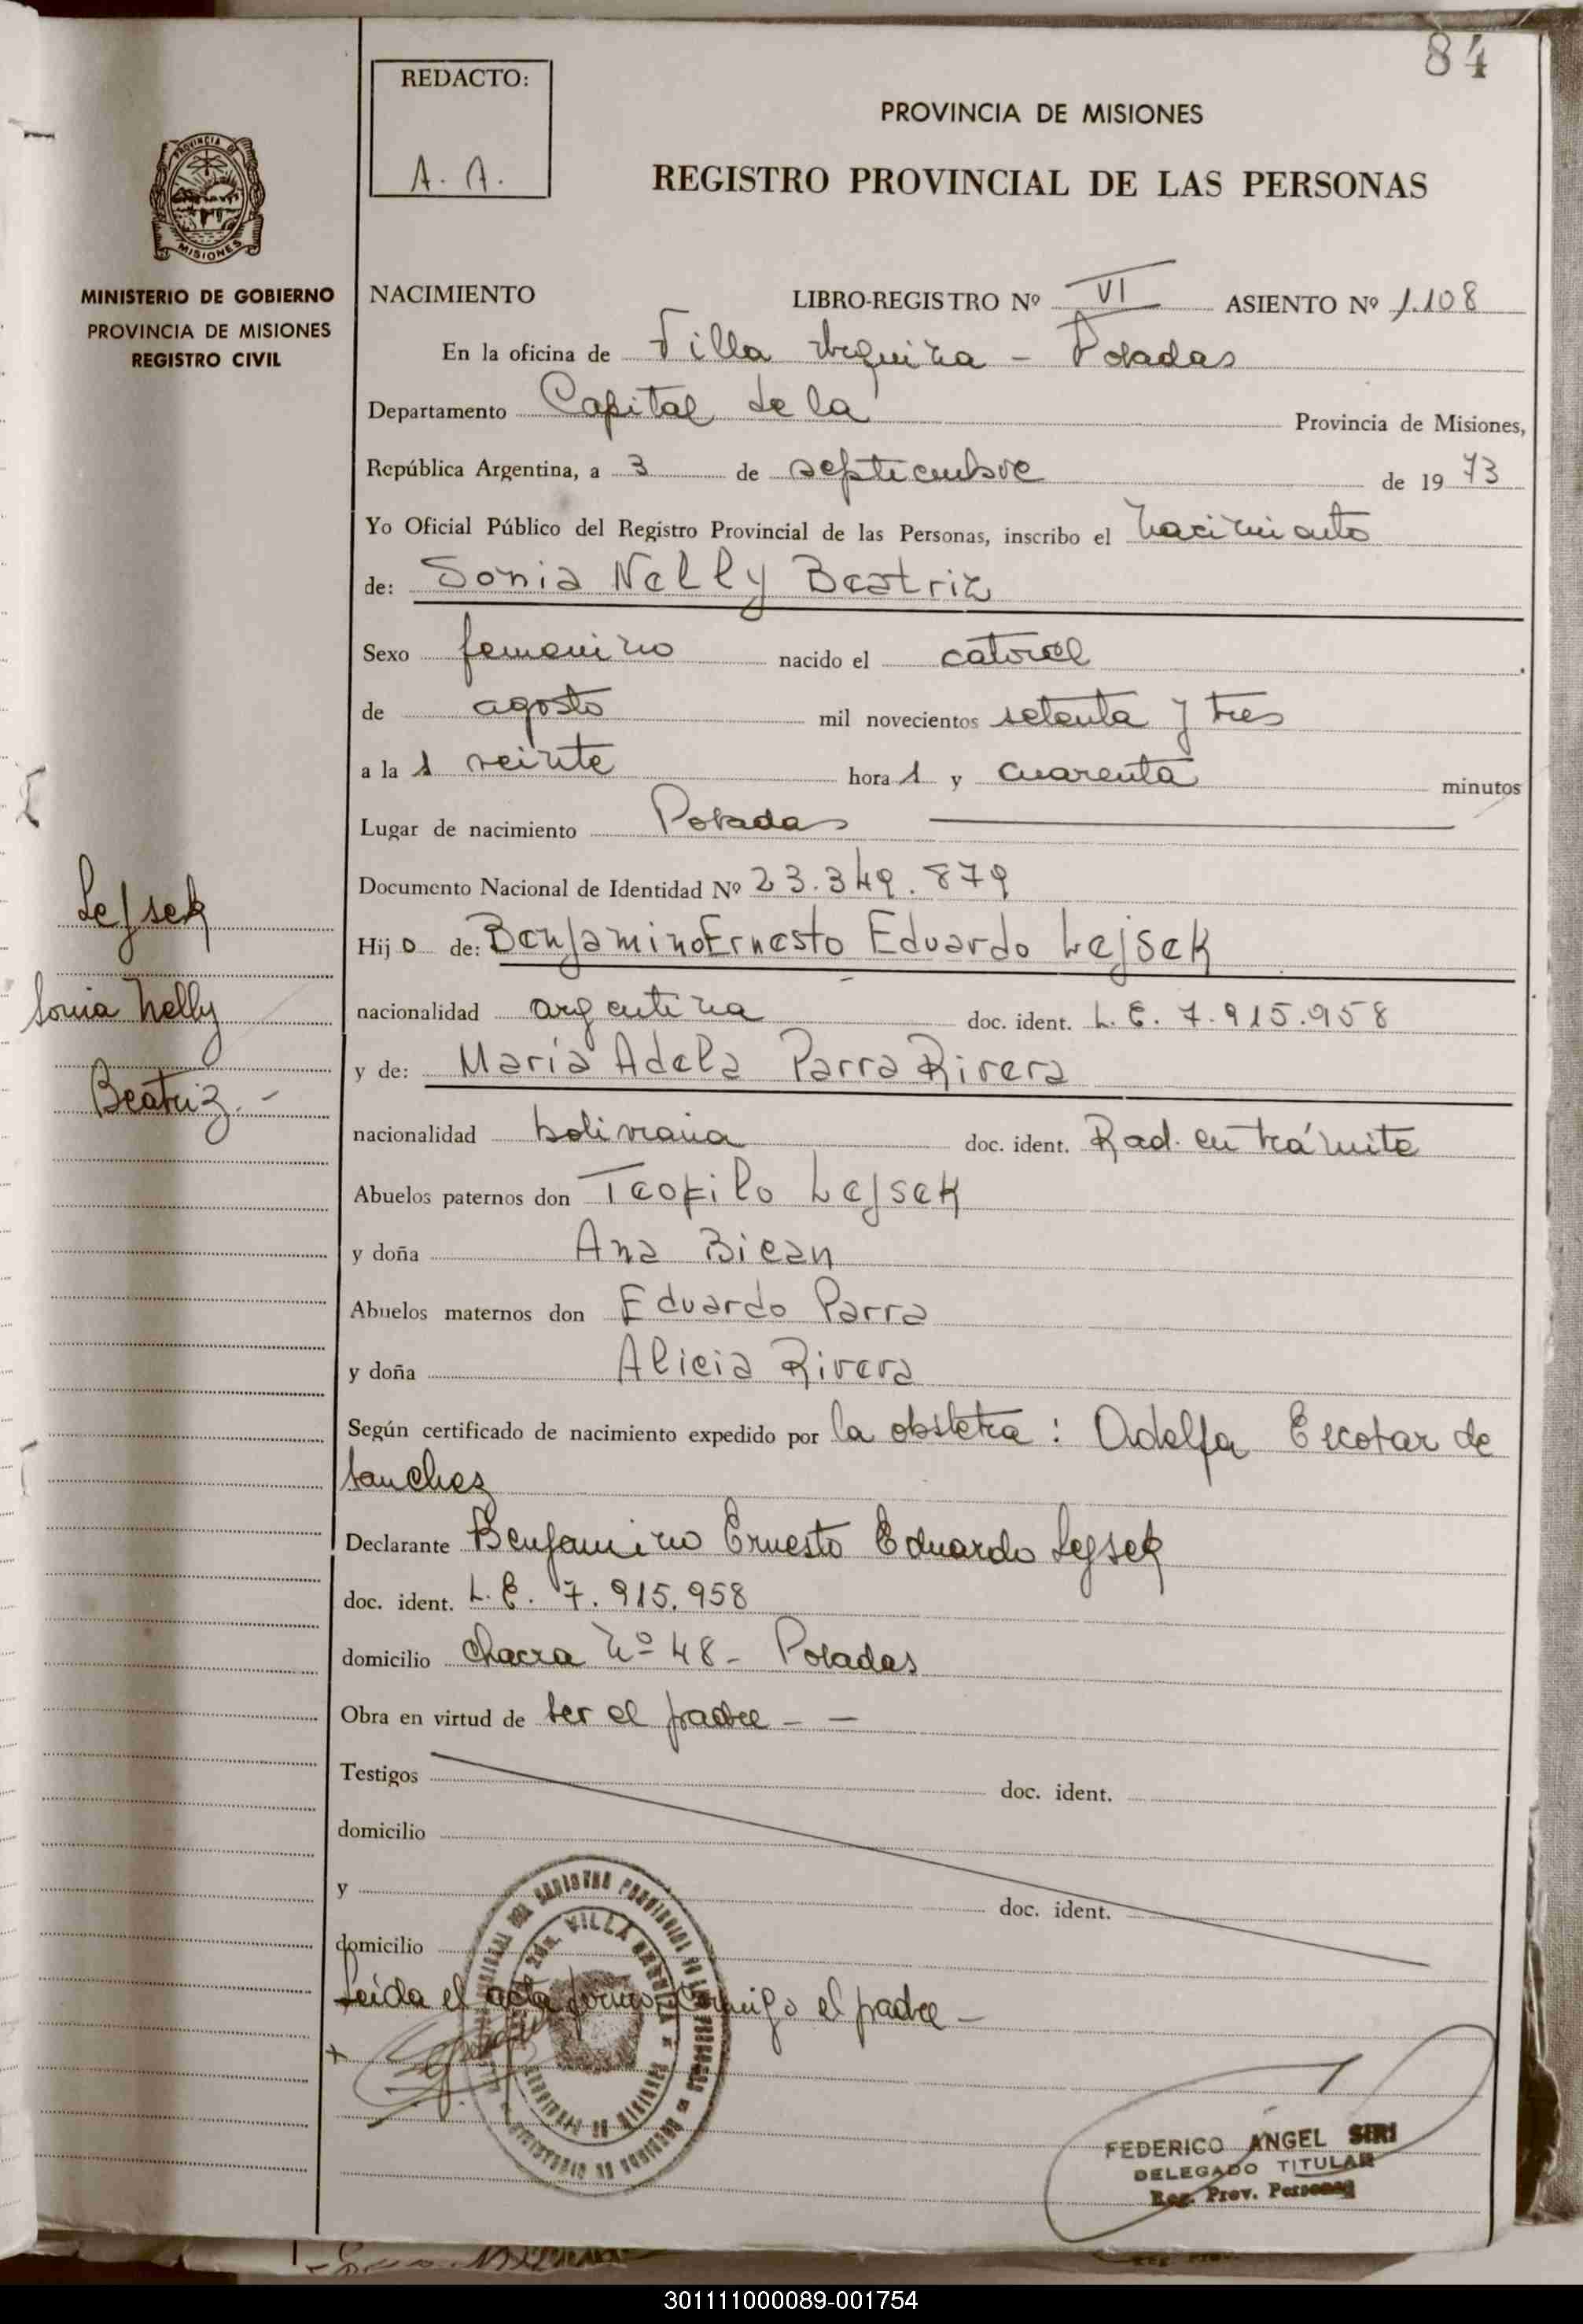 84
REDACTO:
A. A.
PROVINCIA DE MISIONES
REGISTRO PROVINCIAL DE LAS PERSONAS
PROVINCIA DE
MISIONES
MINISTERIO DE GOBIERNO
PROVINCIA DE MISIONES
REGISTRO CIVIL
NACIMIENTO LIBRO-REGISTRO Nº VI ASIENTO Nº 1.108
En la oficina de Villa Urquiza - Posadas
Departamento Capital de la Provincia de Misiones,
República Argentina, a 3 de septiembre de 19 73
Yo Oficial Público del Registro Provincial de las Personas, inscribo el nacimiento
de: Sonia Nelly Beatriz
Sexo femenino nacido el catorce
de agosto mil novecientos setenta y tres
a la s veinte hora s y cuarenta minutos
Lugar de nacimiento Posadas
Documento Nacional de Identidad Nº 23.349.879
Lejsek
Hij o de: Benjamino Ernesto Eduardo Lejsek
Sonia Nelly
nacionalidad argentina doc. ident. L. E. 7.915.958
y de: María Adela Parra Rivera
Beatriz. -
nacionalidad boliviana doc. ident. Rad. en trámite
Abuelos paternos don Teofilo Lejsek
y doña Ana Biean
Abuelos maternos don Eduardo Parra
y doña Alicia Rivera
Según certificado de nacimiento expedido por la obstetra : Adelfa Escobar de
Sanchez
Declarante Benjamino Ernesto Eduardo Lejsek
doc. ident. L. E. 7.915.958
domicilio chacra Nº 48 - Posadas
Obra en virtud de ser el padre - -
Testigos doc. ident.
domicilio
y doc. ident.
domicilio
Leida el acta conmigo el padre -
FEDERICO ANGEL SIRI
DELEGADO TITULAR
Reg. Prov. Personas
301111000089-001754